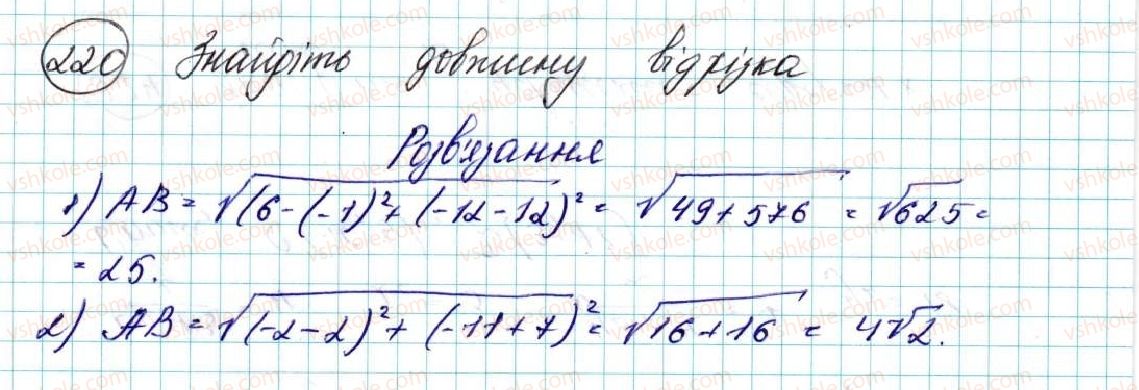 220 Знайдіть довжину відрізка
Розв'язання
1) AB = √(6-(-1)²+(-12-12)² = √49+576 = √625 =
= 25.
2) AB = √(-2-2)²+(-11+7)² = √16+16 = 4√2.